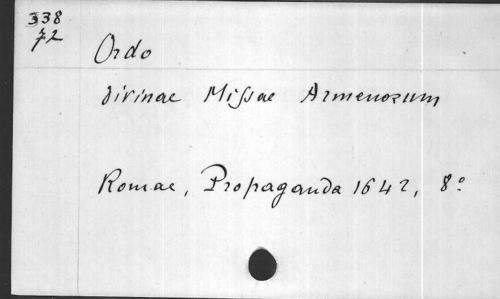 338
72
Ordo
divinae Missae Armenorum
Romae, Propaganda 1642, 8°